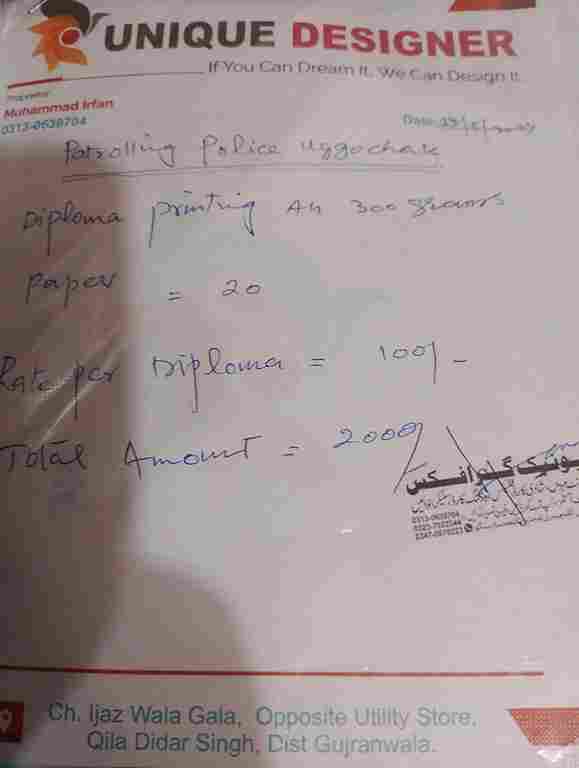 UNIQUE DESIGNER
If You Can Dream It, We Can Design It
Proprietor
Muhammad Irfan
0313-0639704
Date:
Patrolling Police uggochak
Diploma printing A4 300 grams
Paper = 20
Rate per Diploma = 100/-
Total Amount = 2000/
یونیک گرافکس
0313-0639704
Ch. Ijaz Wala Gala, Opposite Utility Store,
Qila Didar Singh, Dist Gujranwala.